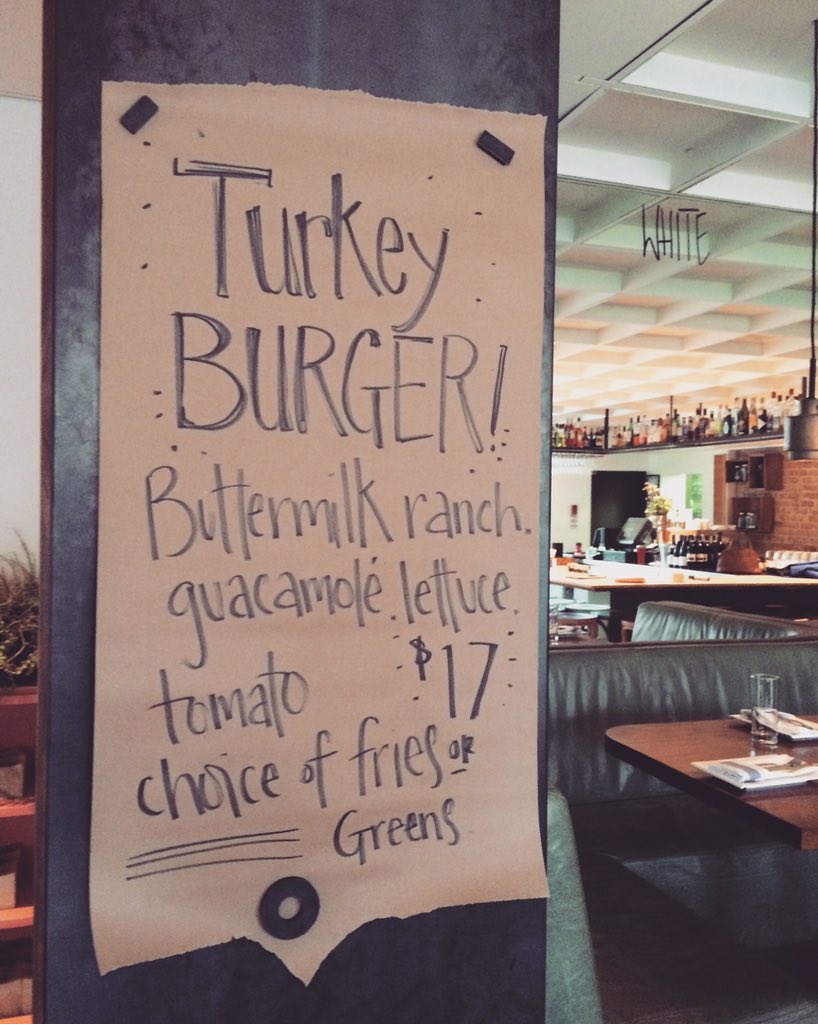 Turkey
BURGER!
Buttermilk ranch.
guacamolé. lettuce.
tomato $17
choice of fries or
Greens
WHITE